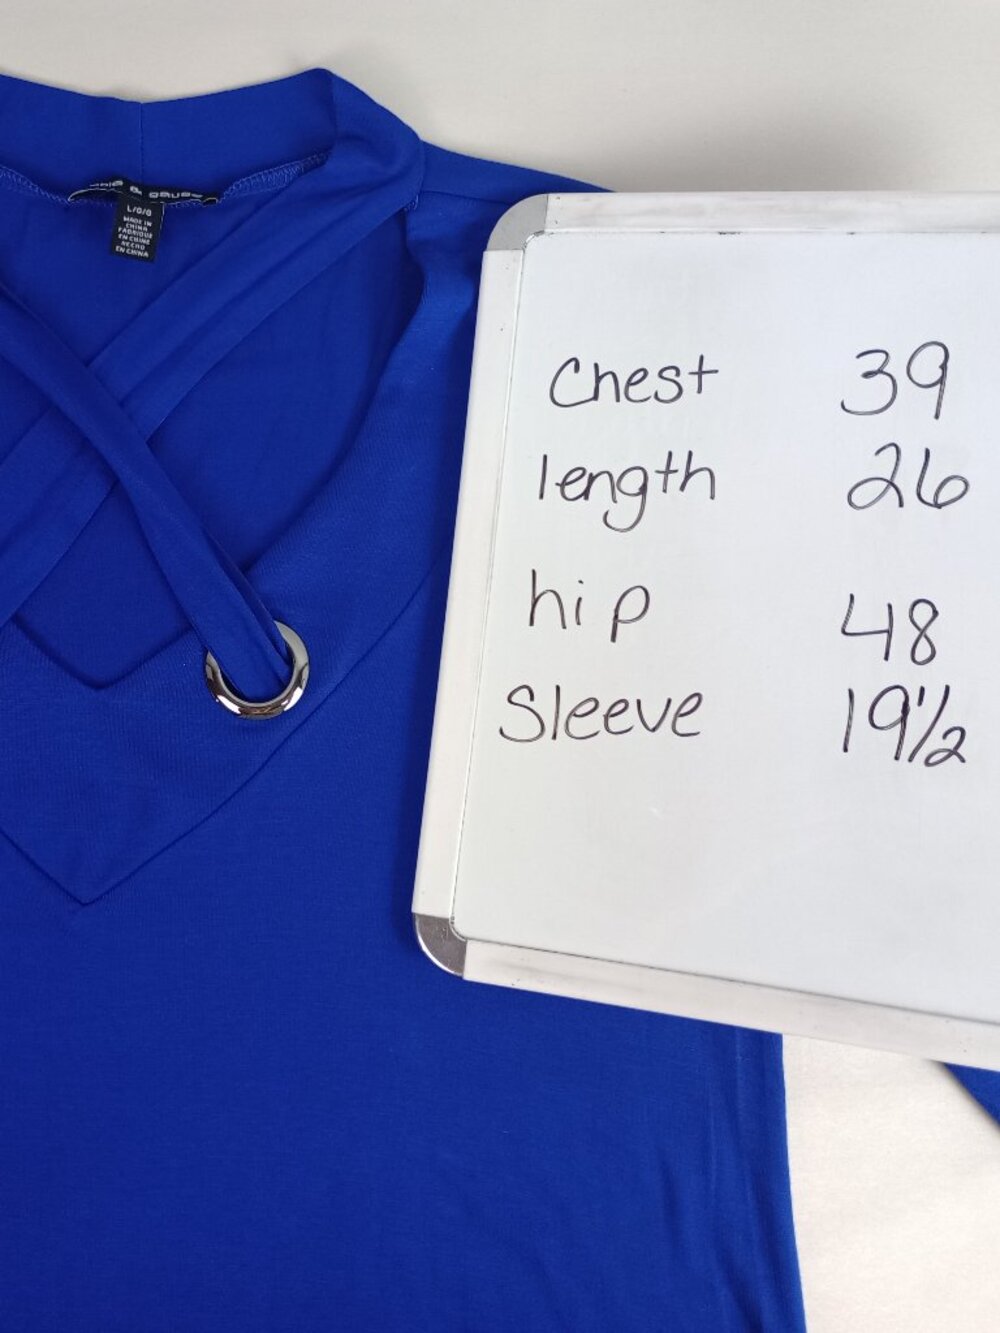 & gau
L/G/G
MADE IN
CHINA
FABRIQUE
EN CHINE
HECHO
EN CHINA
Chest 39
length 26
hip 48
Sleeve 19 1/2